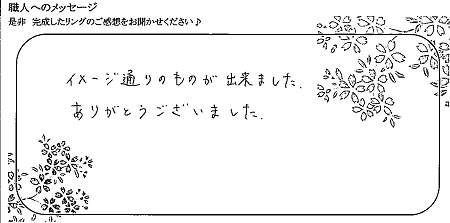 職人へのメッセージ
是非 完成したリングのご感想をお聞かせください♪
イメージ通りのものが出来ました.
ありがとうございました.